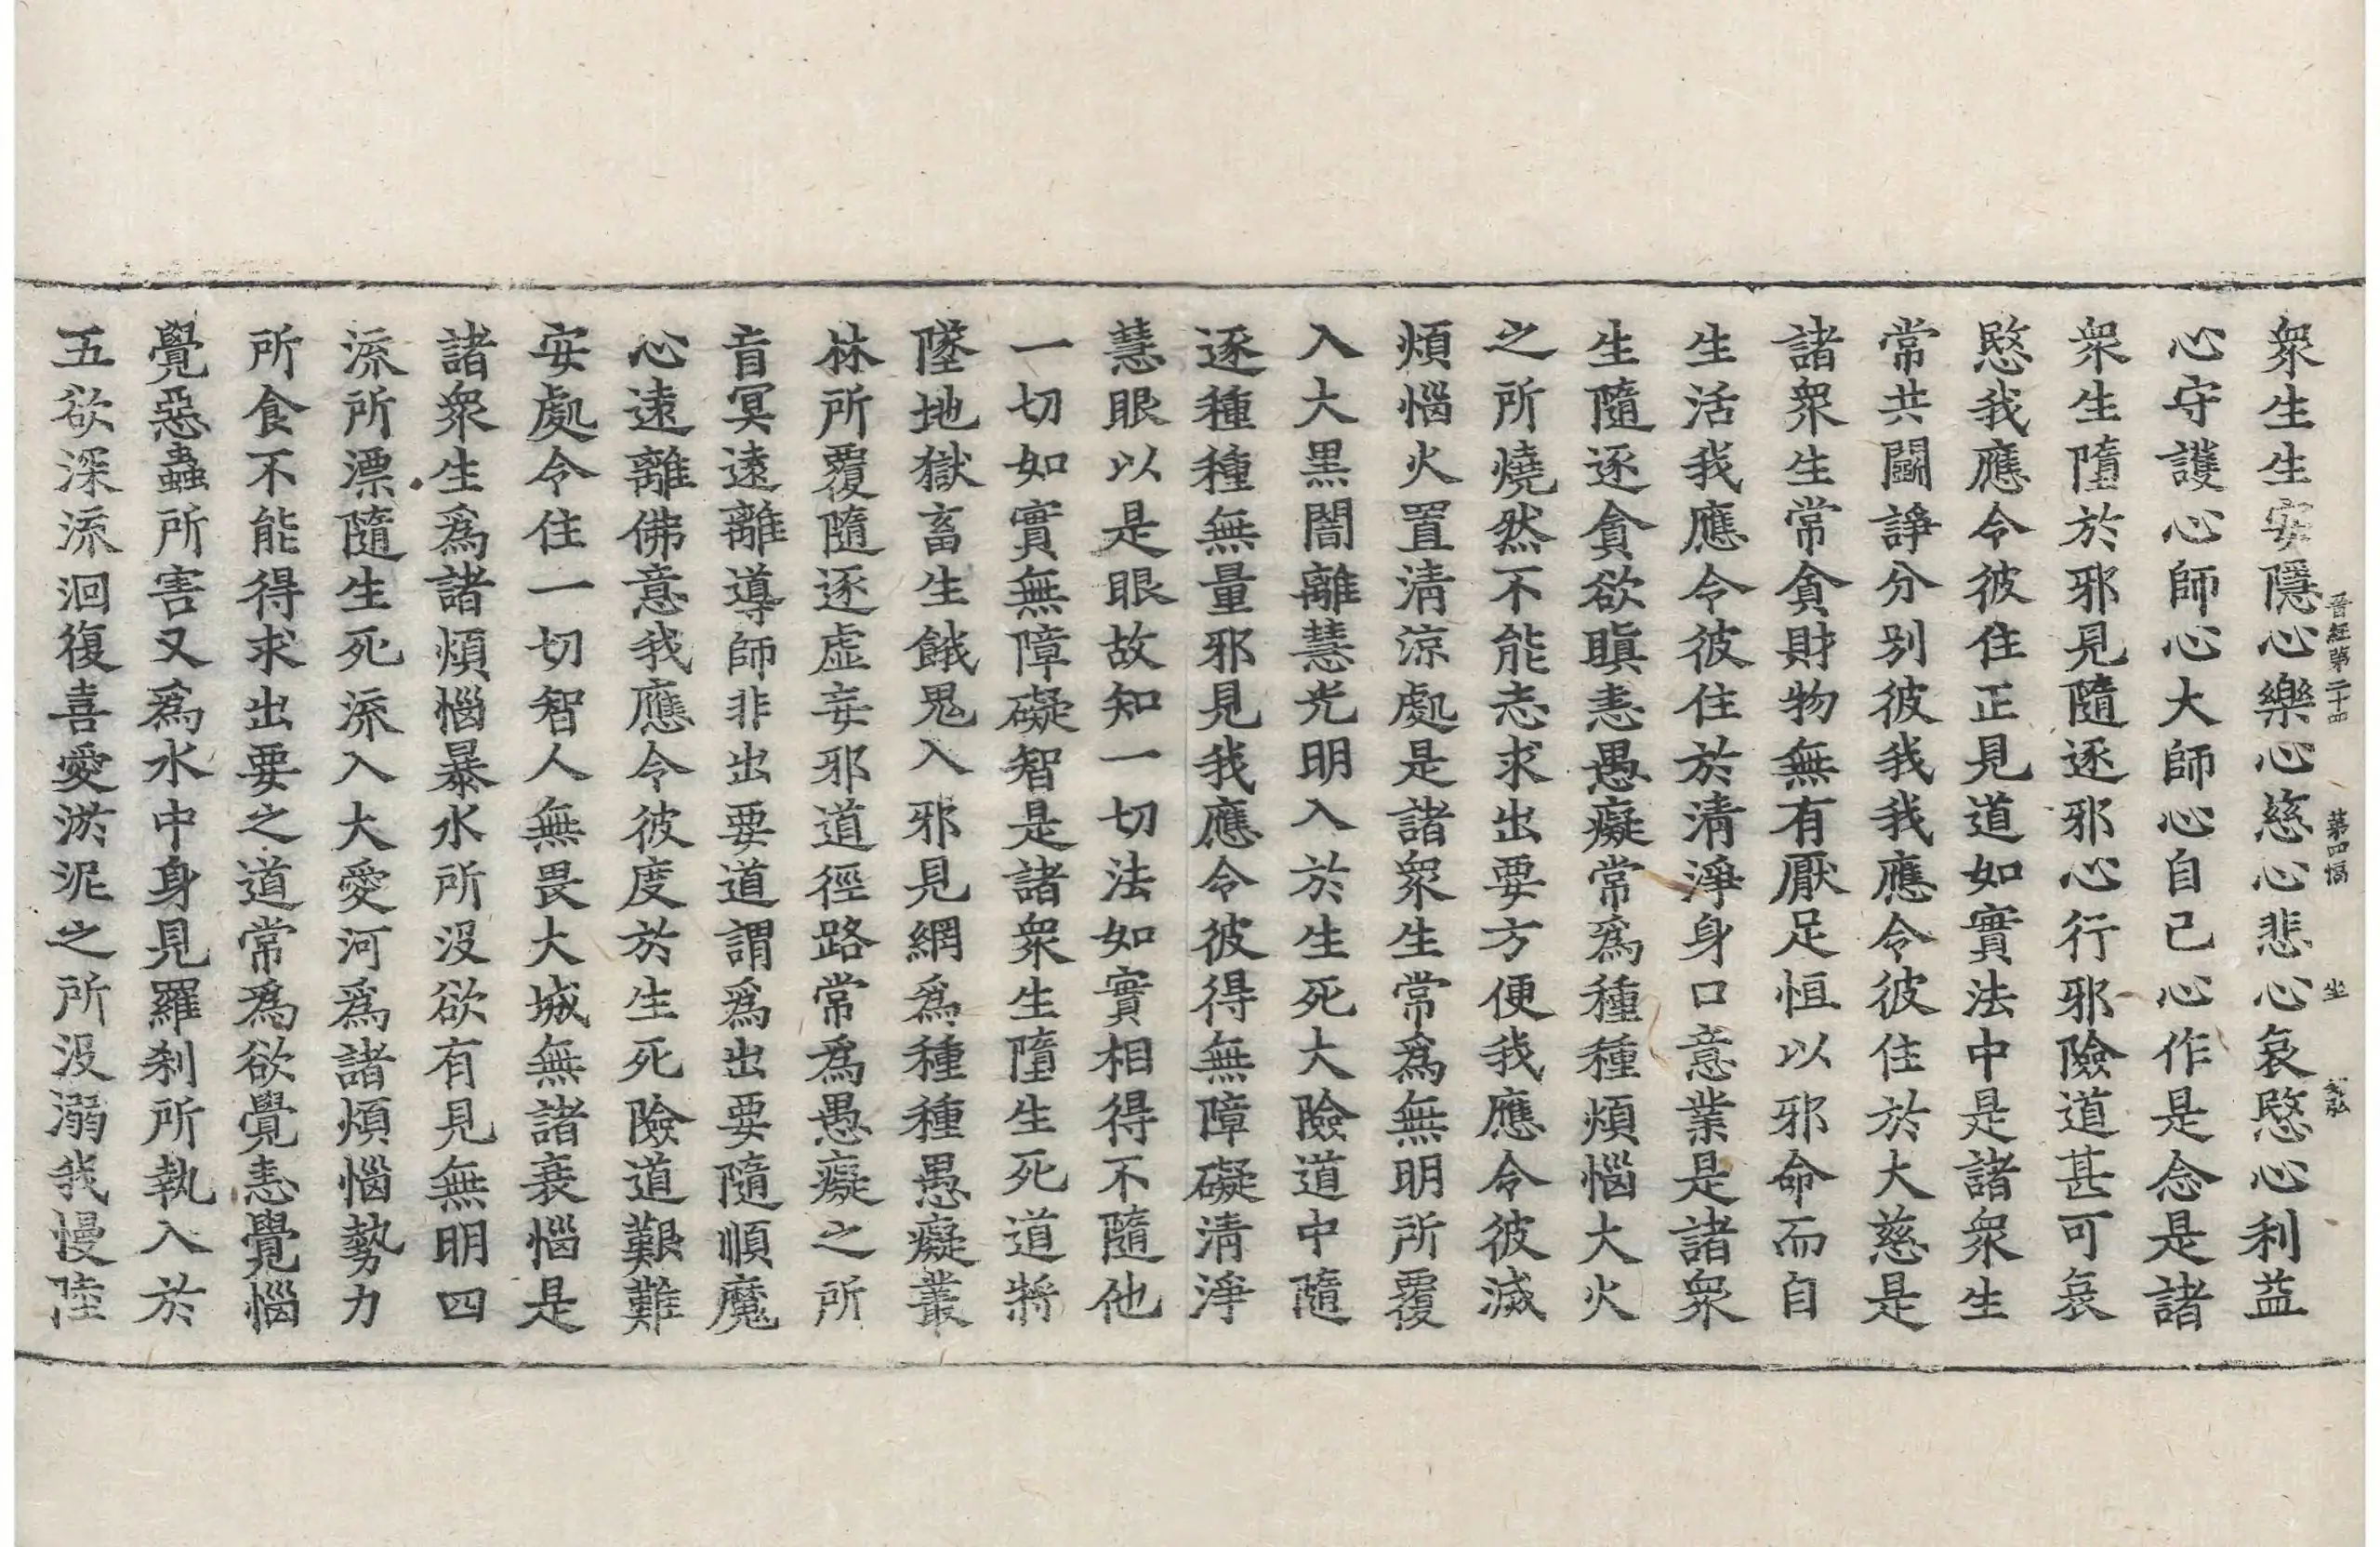 晋經第二十四 第四幅 坐
衆生生安隱心樂心慈心悲心哀愍心利益
心守護心師心大師心自己心作是念是諸
衆生墮於邪見隨逐邪心行邪險道甚可哀
愍我應令彼住正見道如實法中是諸衆生
常共鬪諍分别彼我我應令彼住於大慈是
諸衆生常貪財物無有厭足恒以邪命而自
生活我應令彼住於清淨身口意業是諸衆
生隨逐貪欲瞋恚愚癡常爲種種煩惱大火
之所燒然不能志求出要方便我應令彼滅
煩惱火置清涼處是諸衆生常爲無明所覆
入大黒闇離慧光明入於生死大險道中隨
逐種種無量邪見我應令彼得無障礙清淨
慧眼以是眼故知一切法如實相得不隨他
一切如實無障礙智是諸衆生墮生死道將
墜地獄畜生餓鬼入邪見網爲種種愚癡叢
林所覆隨逐虛妄邪道徑路常爲愚癡之所
盲冥遠離導師非出要道謂爲出要隨順魔
心遠離佛意我應令彼度於生死險道艱難
安處令住一切智人無畏大城無諸衰惱是
諸衆生爲諸煩惱暴水所没欲有見無明四
流所漂隨生死流入大愛河爲諸煩惱勢力
所食不能得求出要之道常爲欲覺恚覺惱
覺惡蟲所害又爲水中身見羅刹所執入於
五欲深流洄復喜愛淤泥之所没溺我慢陸